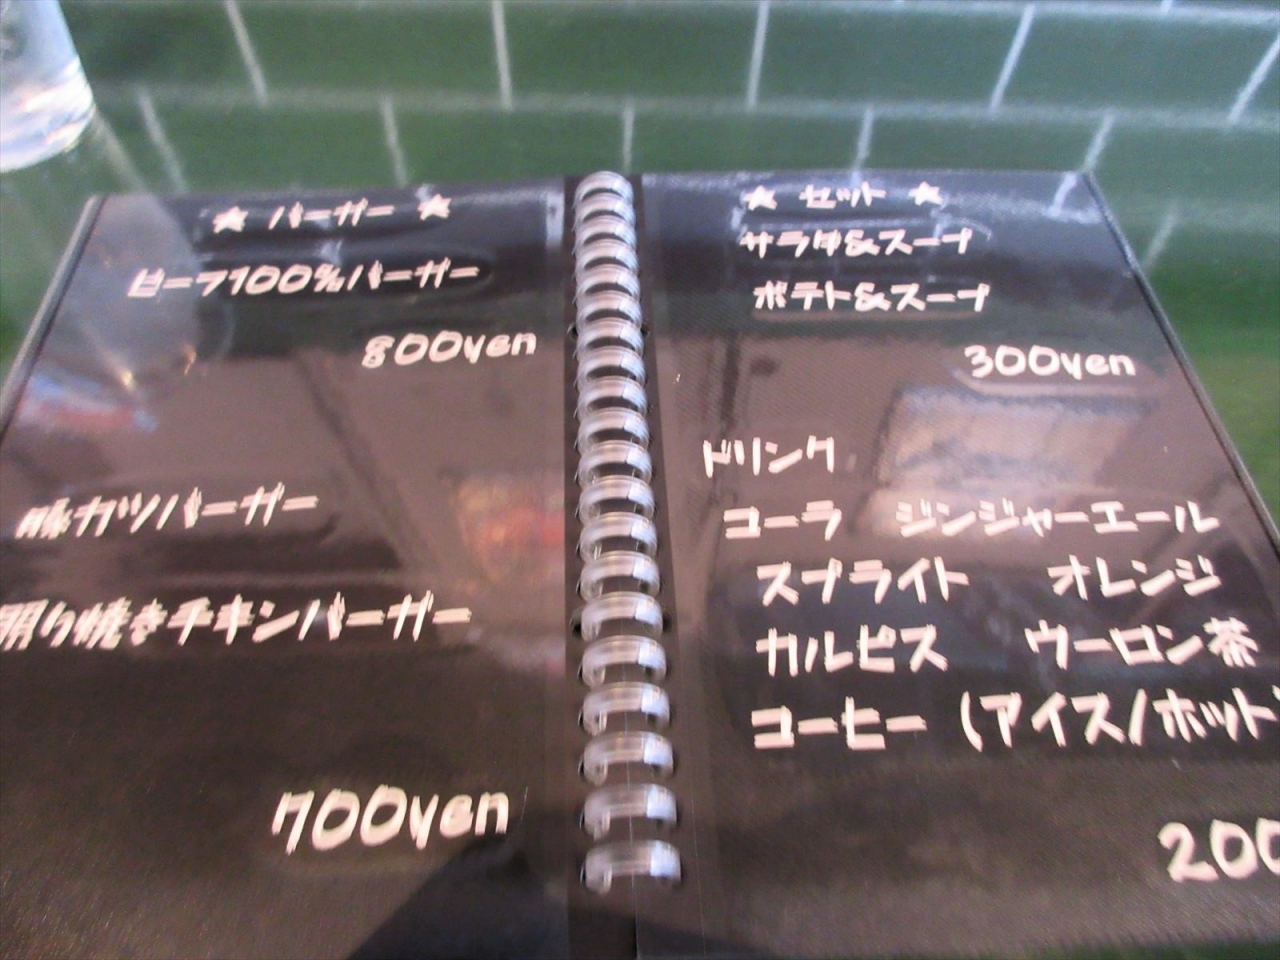 ★ バーガー ★
ビーフ100%バーガー
800yen
豚カツバーガー
照り焼きチキンバーガー
700yen
★ セット ★
サラダ&スープ
ポテト&スープ
300yen
ドリンク
コーラ ジンジャーエール
スプライト オレンジ
カルピス ウーロン茶
コーヒー (アイス/ホット)
200